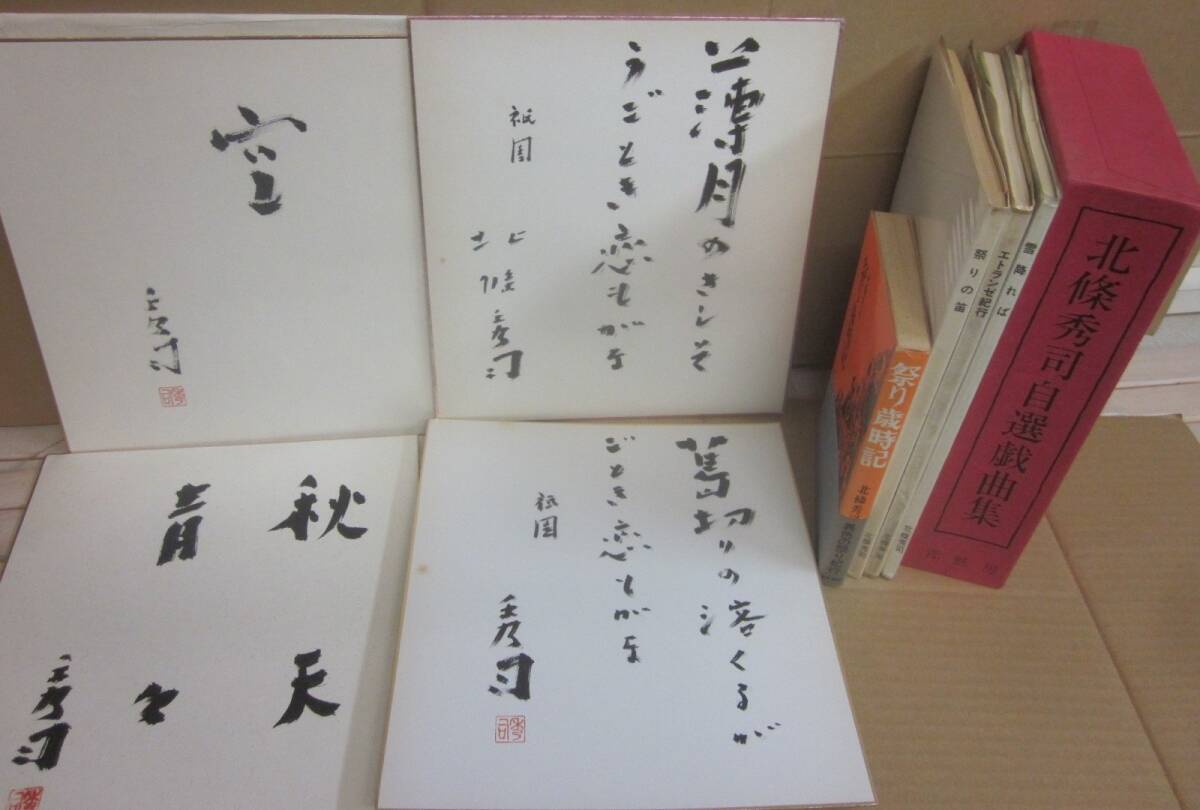 空
秀司
薄月のさしそ
うごとき恋もがな
祇園
北條秀司
秋天
青々
秀司
葛切りの溶くるが
ごとき恋もがな
祇園
秀司
祭り歳時記
北條秀
祭りの笛
北條秀司
エトランゼ紀行
北條秀司
雪降れば
北條秀司
北條秀司自選戯曲集
青蛙房